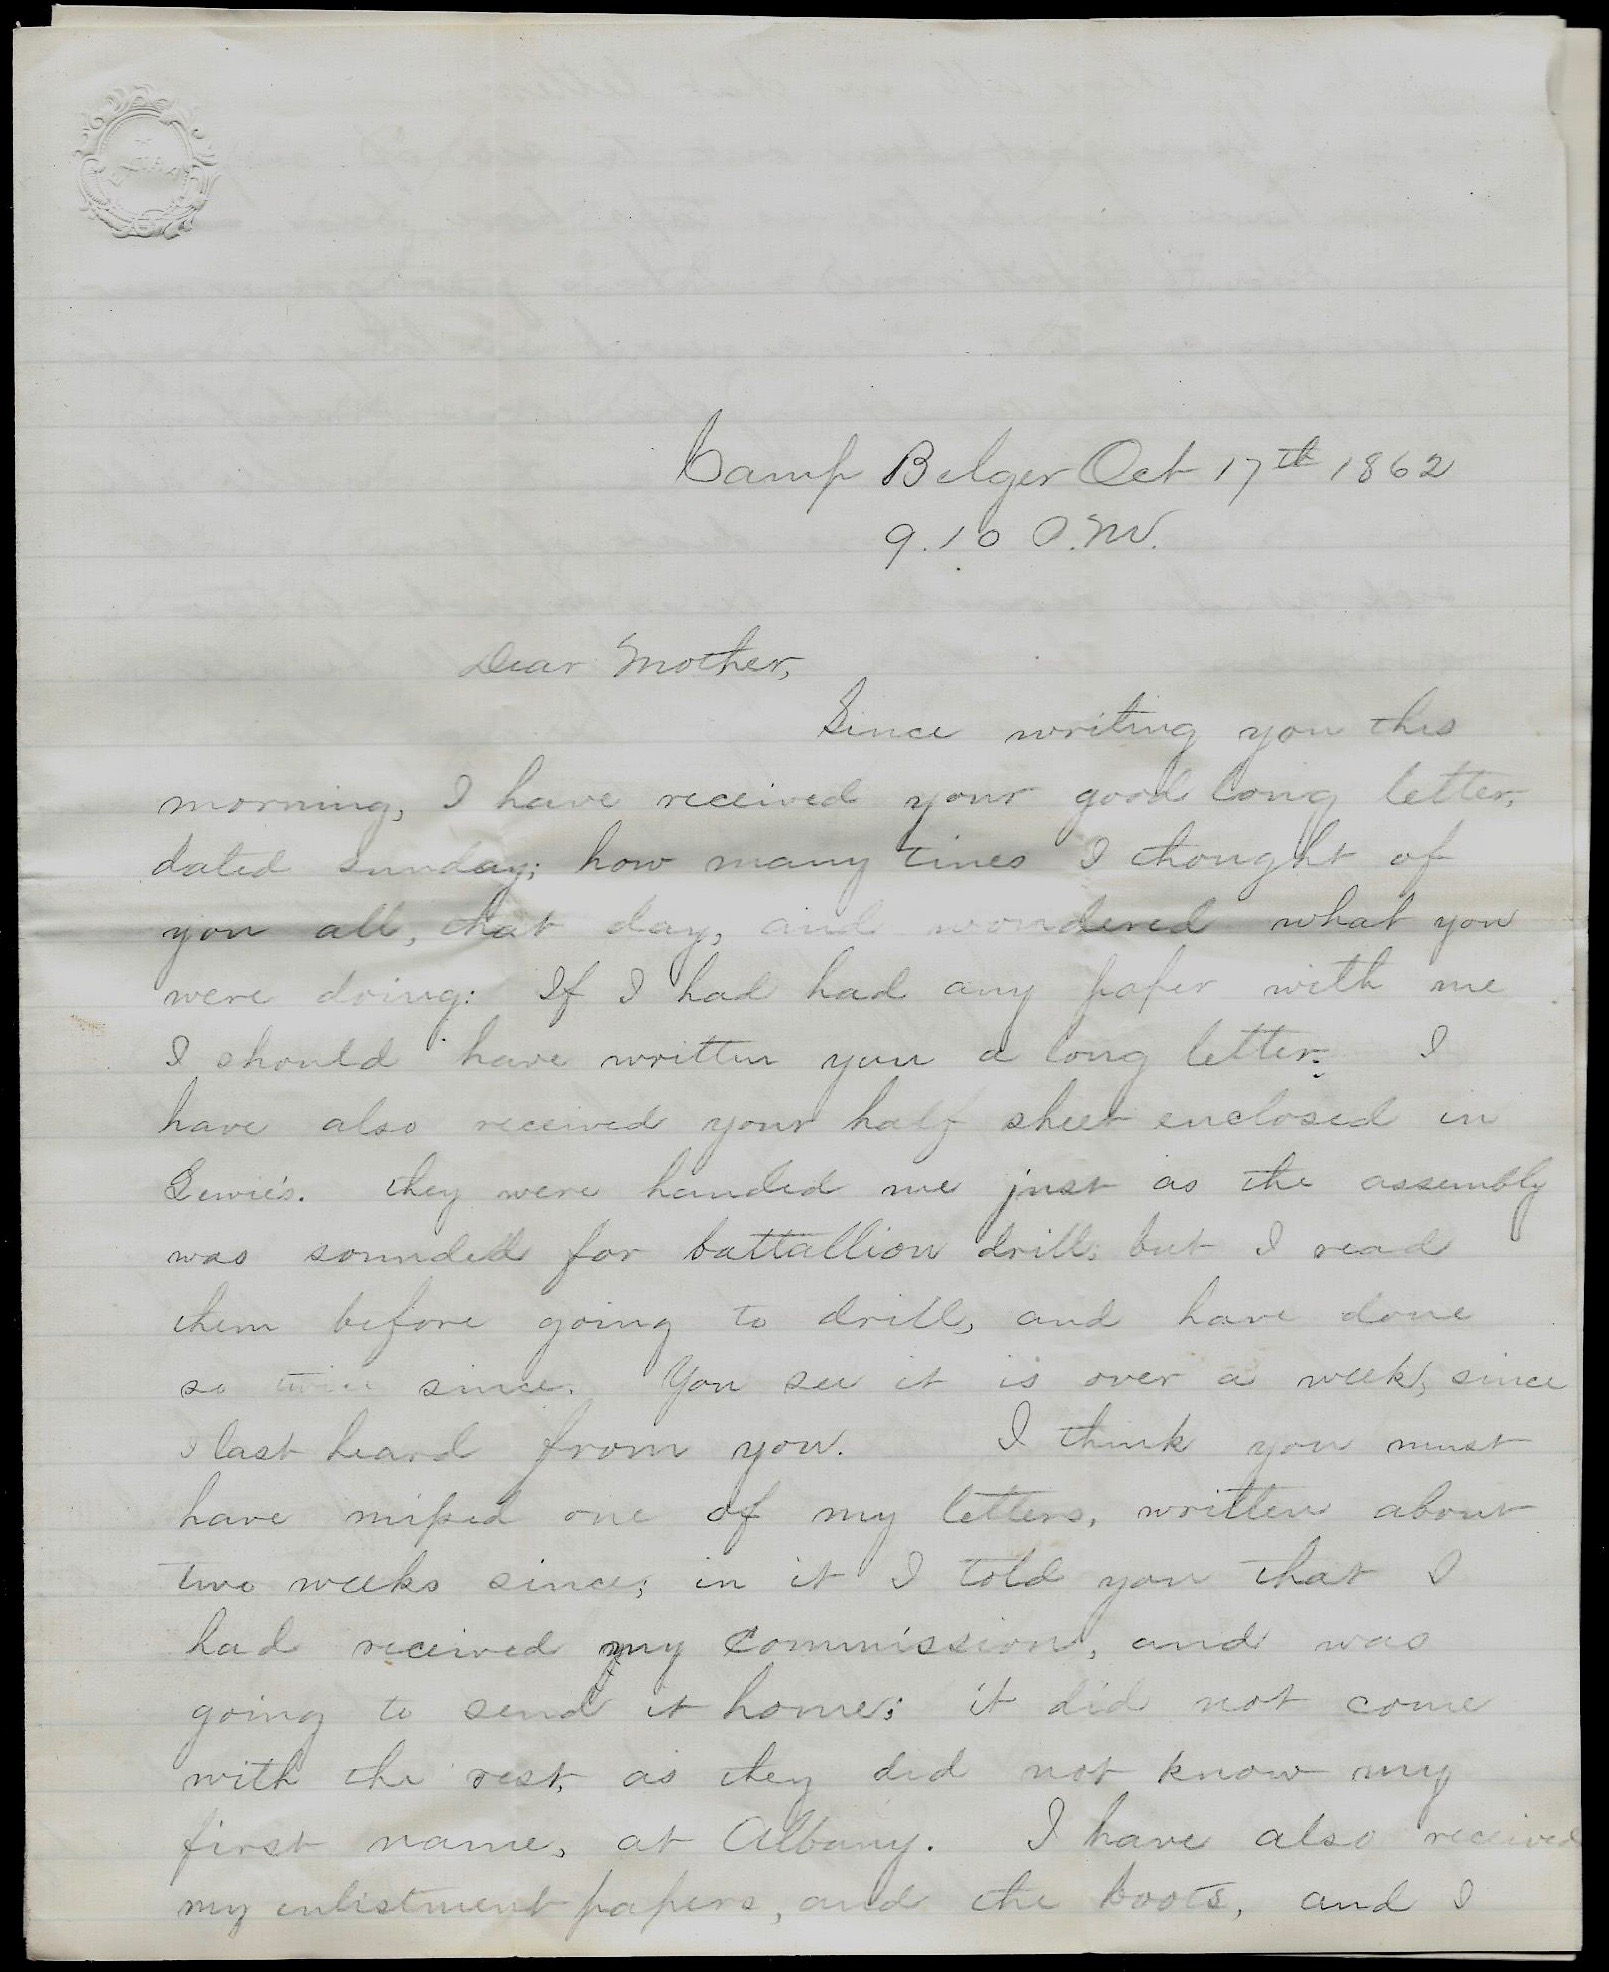 Camp Belger Oct 17th 1862
9.10 P.M.
Dear Mother,
Since writing you this
morning, I have received your good long letter,
dated Sunday; how many times I thought of
you all, that day, and wondered what you
were doing: If I had had any paper with me
I should have written you a long letter. I
have also received your half sheet enclosed in
Lewie's. they were handed me just as the assembly
was sounded for battallion drill; but I read
them before going to drill, and have done
so twice since. You see it is over a week, since
I last heard from you. I think you must
have missed one of my letters, written about
two weeks since; in it I told you that I
had received my commission, and was
going to send it home; it did not come
with the rest, as they did not know my
first name, at Albany. I have also received
my enlistment papers, and the boots, and I